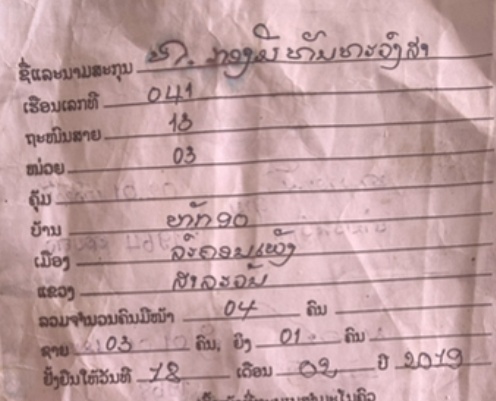 ຊື່ແລະນາມສະກຸນ ທ້າ. ກອງມີ
ເຮືອນເລກທີ 041
ຖະໜົນສາຍ 13
ໜ່ວຍ 03
ຄຸ້ມ
ບ້ານ ຍາກ 90
ເມືອງ ລະຄອນເພັງ
ແຂວງ ສາລະວັນ
ລວມຈຳນວນຄົນມີໜ້າ 04 ຄົນ
ຊາຍ 03 ຄົນ, ຍິງ 01 ຄົນ
ຢັ້ງຢືນໃຫ້ວັນທີ 18 ເດືອນ 02 ປີ 2019